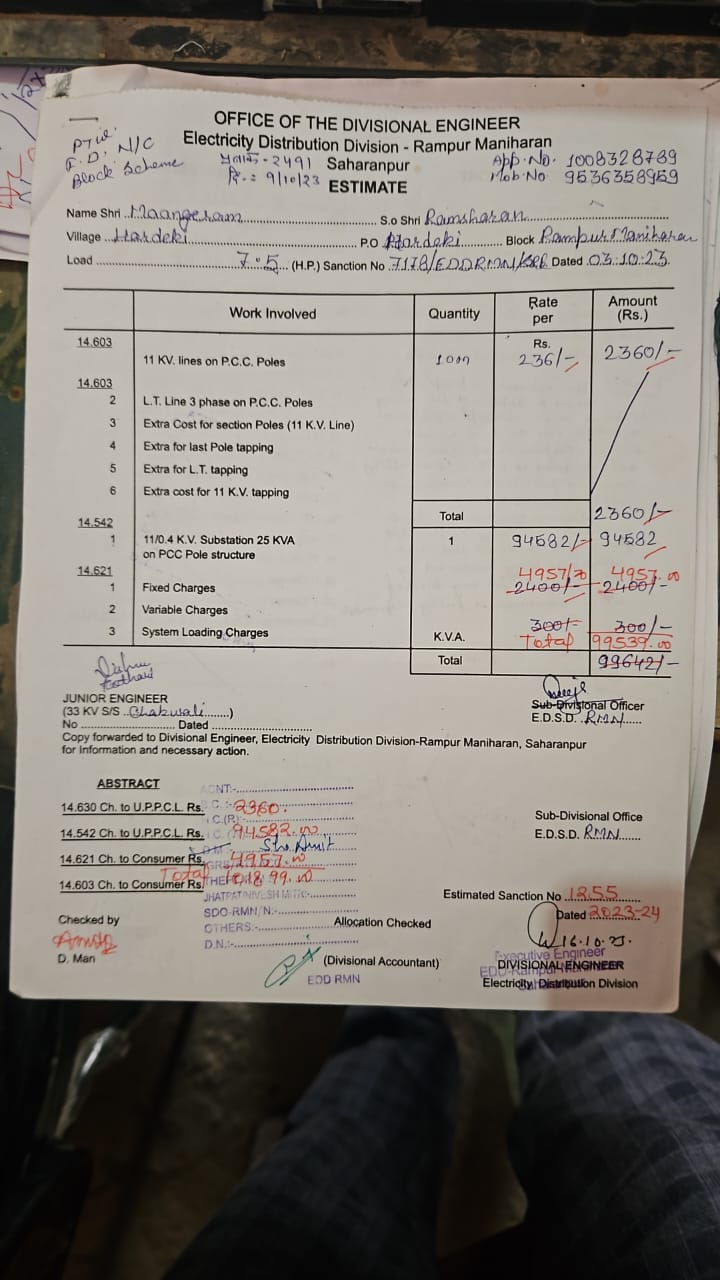 OFFICE OF THE DIVISIONAL ENGINEER
Electricity Distribution Division - Rampur Maniharan
Saharanpur
ESTIMATE
PTW
N/C
Block Scheme
2491
9/10/23
App. No. 1008328789
Mob No 9536358959
Name Shri Maangeram S.o Shri Ramsharan
Village Hardeki P.O Hardeki Block Rampur Maniharan
Load 7.5 (H.P.) Sanction No 7178/EDDRMN/ Dated 03.10.23
Work Involved Quantity Rate per Amount (Rs.)
14.603 Rs.
11 KV. lines on P.C.C. Poles 10m 236/- 2360/-
14.603
2 L.T. Line 3 phase on P.C.C. Poles
3 Extra Cost for section Poles (11 K.V. Line)
4 Extra for last Pole tapping
5 Extra for L.T. tapping
6 Extra cost for 11 K.V. tapping
Total 2360/-
14.542
1 11/0.4 K.V. Substation 25 KVA 1 94582/- 94582
on PCC Pole structure
14.621 4957/00 4957.00
1 Fixed Charges 2400/- 2400/-
2 Variable Charges
300/- 300/-
3 System Loading Charges K.V.A. Total 99539.00
Total 99642/-
JUNIOR ENGINEER
(33 KV S/S Chakwali)
No Dated
Sub-Divisional Officer
E.D.S.D. RMN
Copy forwarded to Divisional Engineer, Electricity Distribution Division-Rampur Maniharan, Saharanpur
for information and necessary action.
ABSTRACT
ACNT:-
14.630 Ch. to U.P.P.C.L. Rs. 2360.
I.C.(R):-
14.542 Ch. to U.P.P.C.L. Rs. 94582.00
Amit
14.621 Ch. to Consumer Rs. 4957.00
Total 101899.00
14.603 Ch. to Consumer Rs.
JHATPAT/NIVESH MITR:-
SDO-RMN/N:-
OTHERS:-
D.N.:-
Sub-Divisional Office
E.D.S.D. RMN
Estimated Sanction No 1255
Dated 2023-24
16.10.23.
Checked by
D. Man
Allocation Checked
(Divisional Accountant)
EDD RMN
Executive Engineer
DIVISIONAL ENGINEER
Electricity Distribution Division